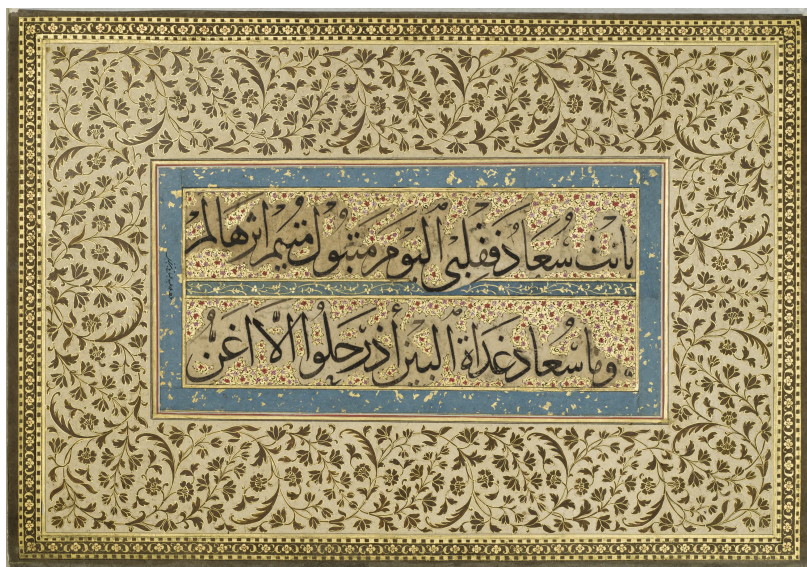 بانت سُعَادُ فَقَلبى اليَوْمَ مَتبُول مُتيم اثرهَا لم
وما سُعاد غَداةَ البين أذ رَحلوا الّا اَغن